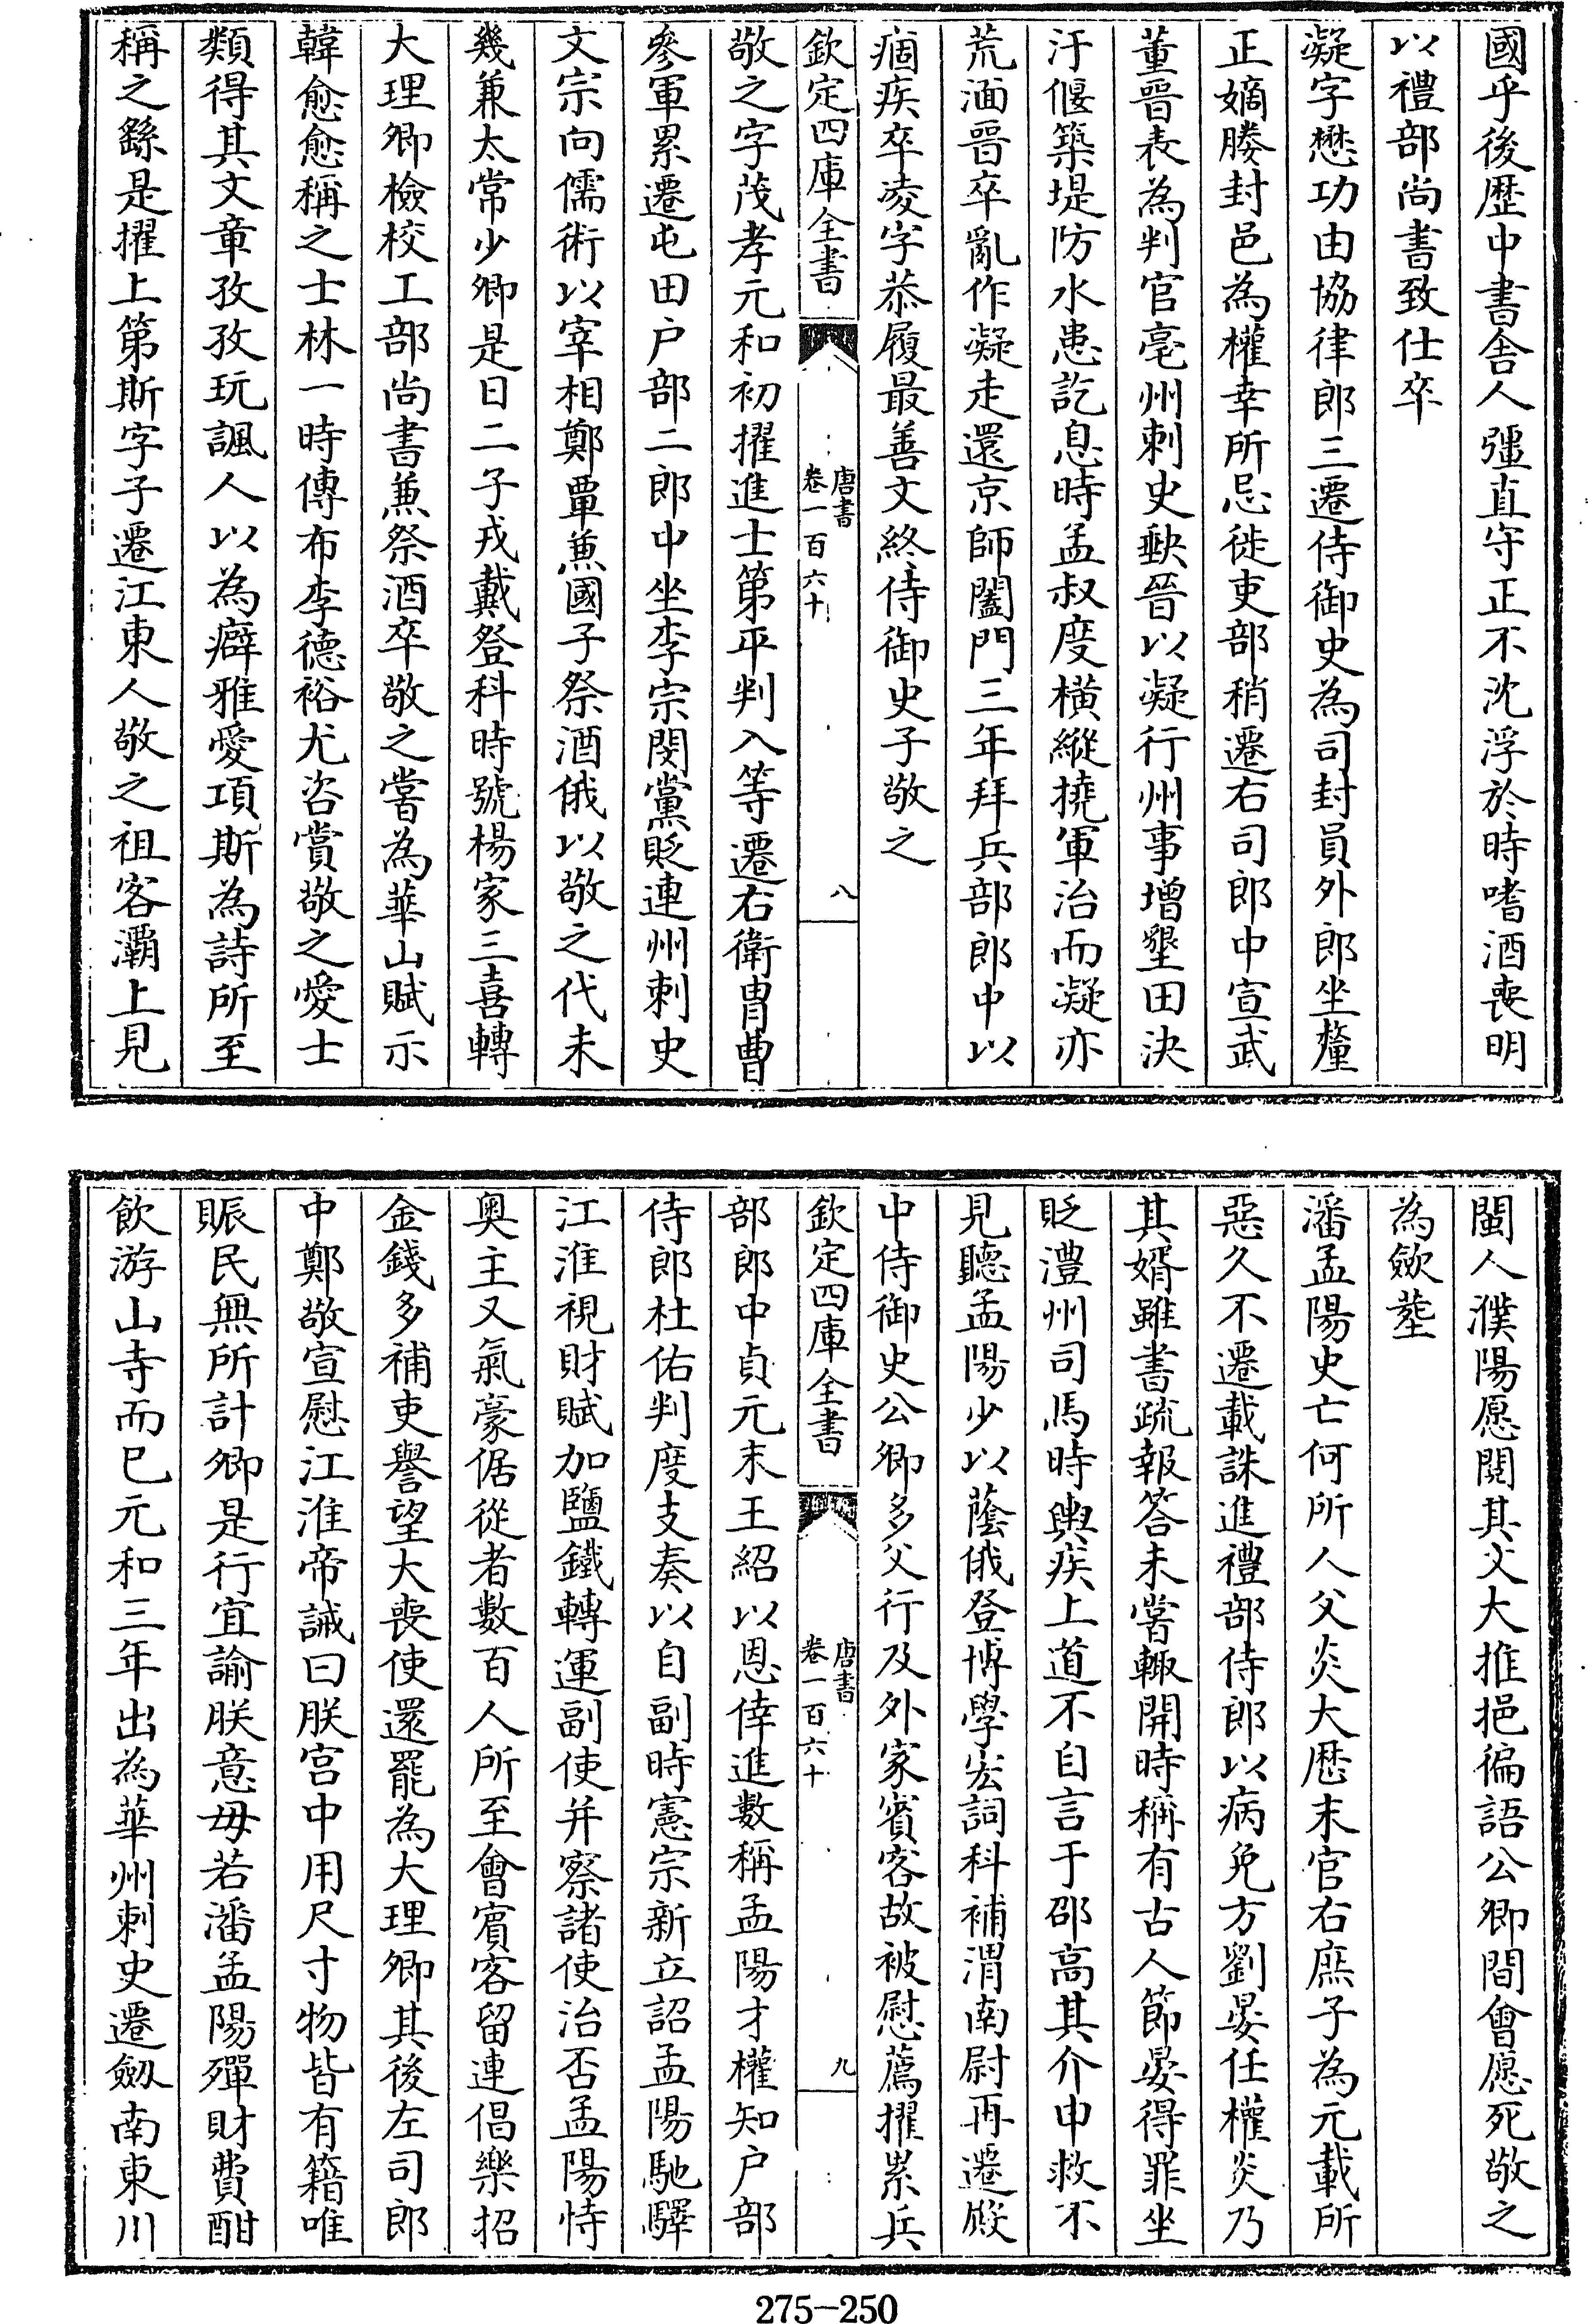 國乎後歴中書舎人彊直守正不沈浮於時嗜酒喪明
以禮部尚書致仕卒
凝字懋功由協律郎三遷侍御史為司封員外郎坐釐
正嫡媵封邑為權幸所忌徙吏部稍遷右司郎中宣武
董晉表為判官亳州刺史缺晉以凝行州事增墾田決
汙偃築堤防水患訖息時孟叔度橫縱撓軍治而凝亦
荒湎晉卒亂作凝走還京師闔門三年拜兵部郎中以
痼疾卒凌字恭履最善文終侍御史子敬之
欽定四庫全書
唐書
卷一百六十
八
敬之字茂孝元和初擢進士第平判入等遷右衛胄曹
參軍累遷屯田户部二郎中坐李宗閔黨貶連州刺史
文宗向儒術以宰相鄭覃兼國子祭酒俄以敬之代未
幾兼太常少卿是日二子戎戴登科時號楊家三喜轉
大理卿檢校工部尚書兼祭酒卒敬之嘗為華山賦示
韓愈愈稱之士林一時傳布李德裕尤咨賞敬之愛士
類得其文章孜孜玩諷人以為癖雅愛項斯為詩所至
稱之繇是擢上第斯字子遷江東人敬之祖客灞上見
閩人濮陽愿閱其文大推挹徧語公卿間會愿死敬之
為斂塟
潘孟陽史亡何所人父炎大歴末官右庶子為元載所
惡久不遷載誅進禮部侍郎以病免方劉晏任權炎乃
其婿雖書疏報答未嘗輙開時稱有古人節晏得罪坐
貶澧州司馬時輿疾上道不自言于邵高其介申救不
見聽孟陽少以蔭俄登博學宏詞科補渭南尉再遷殿
中侍御史公卿多父行及外家賓客故被慰薦擢累兵
欽定四庫全書
唐書
卷一百六十
九
部郎中貞元末王紹以恩倖進數稱孟陽才權知户部
侍郎杜佑判度支奏以自副時憲宗新立詔孟陽馳驛
江淮視財賦加鹽鐵轉運副使并察諸使治否孟陽恃
奥主又氣豪倨從者數百人所至會賓客留連倡樂招
金錢多補吏譽望大喪使還罷為大理卿其後左司郎
中鄭敬宣慰江淮帝誡曰朕宫中用尺寸物皆有籍唯
賑民無所計卿是行宜諭朕意毋若潘孟陽殫財費酣
飲游山寺而已元和三年出為華州刺史遷劔南東川
275-250